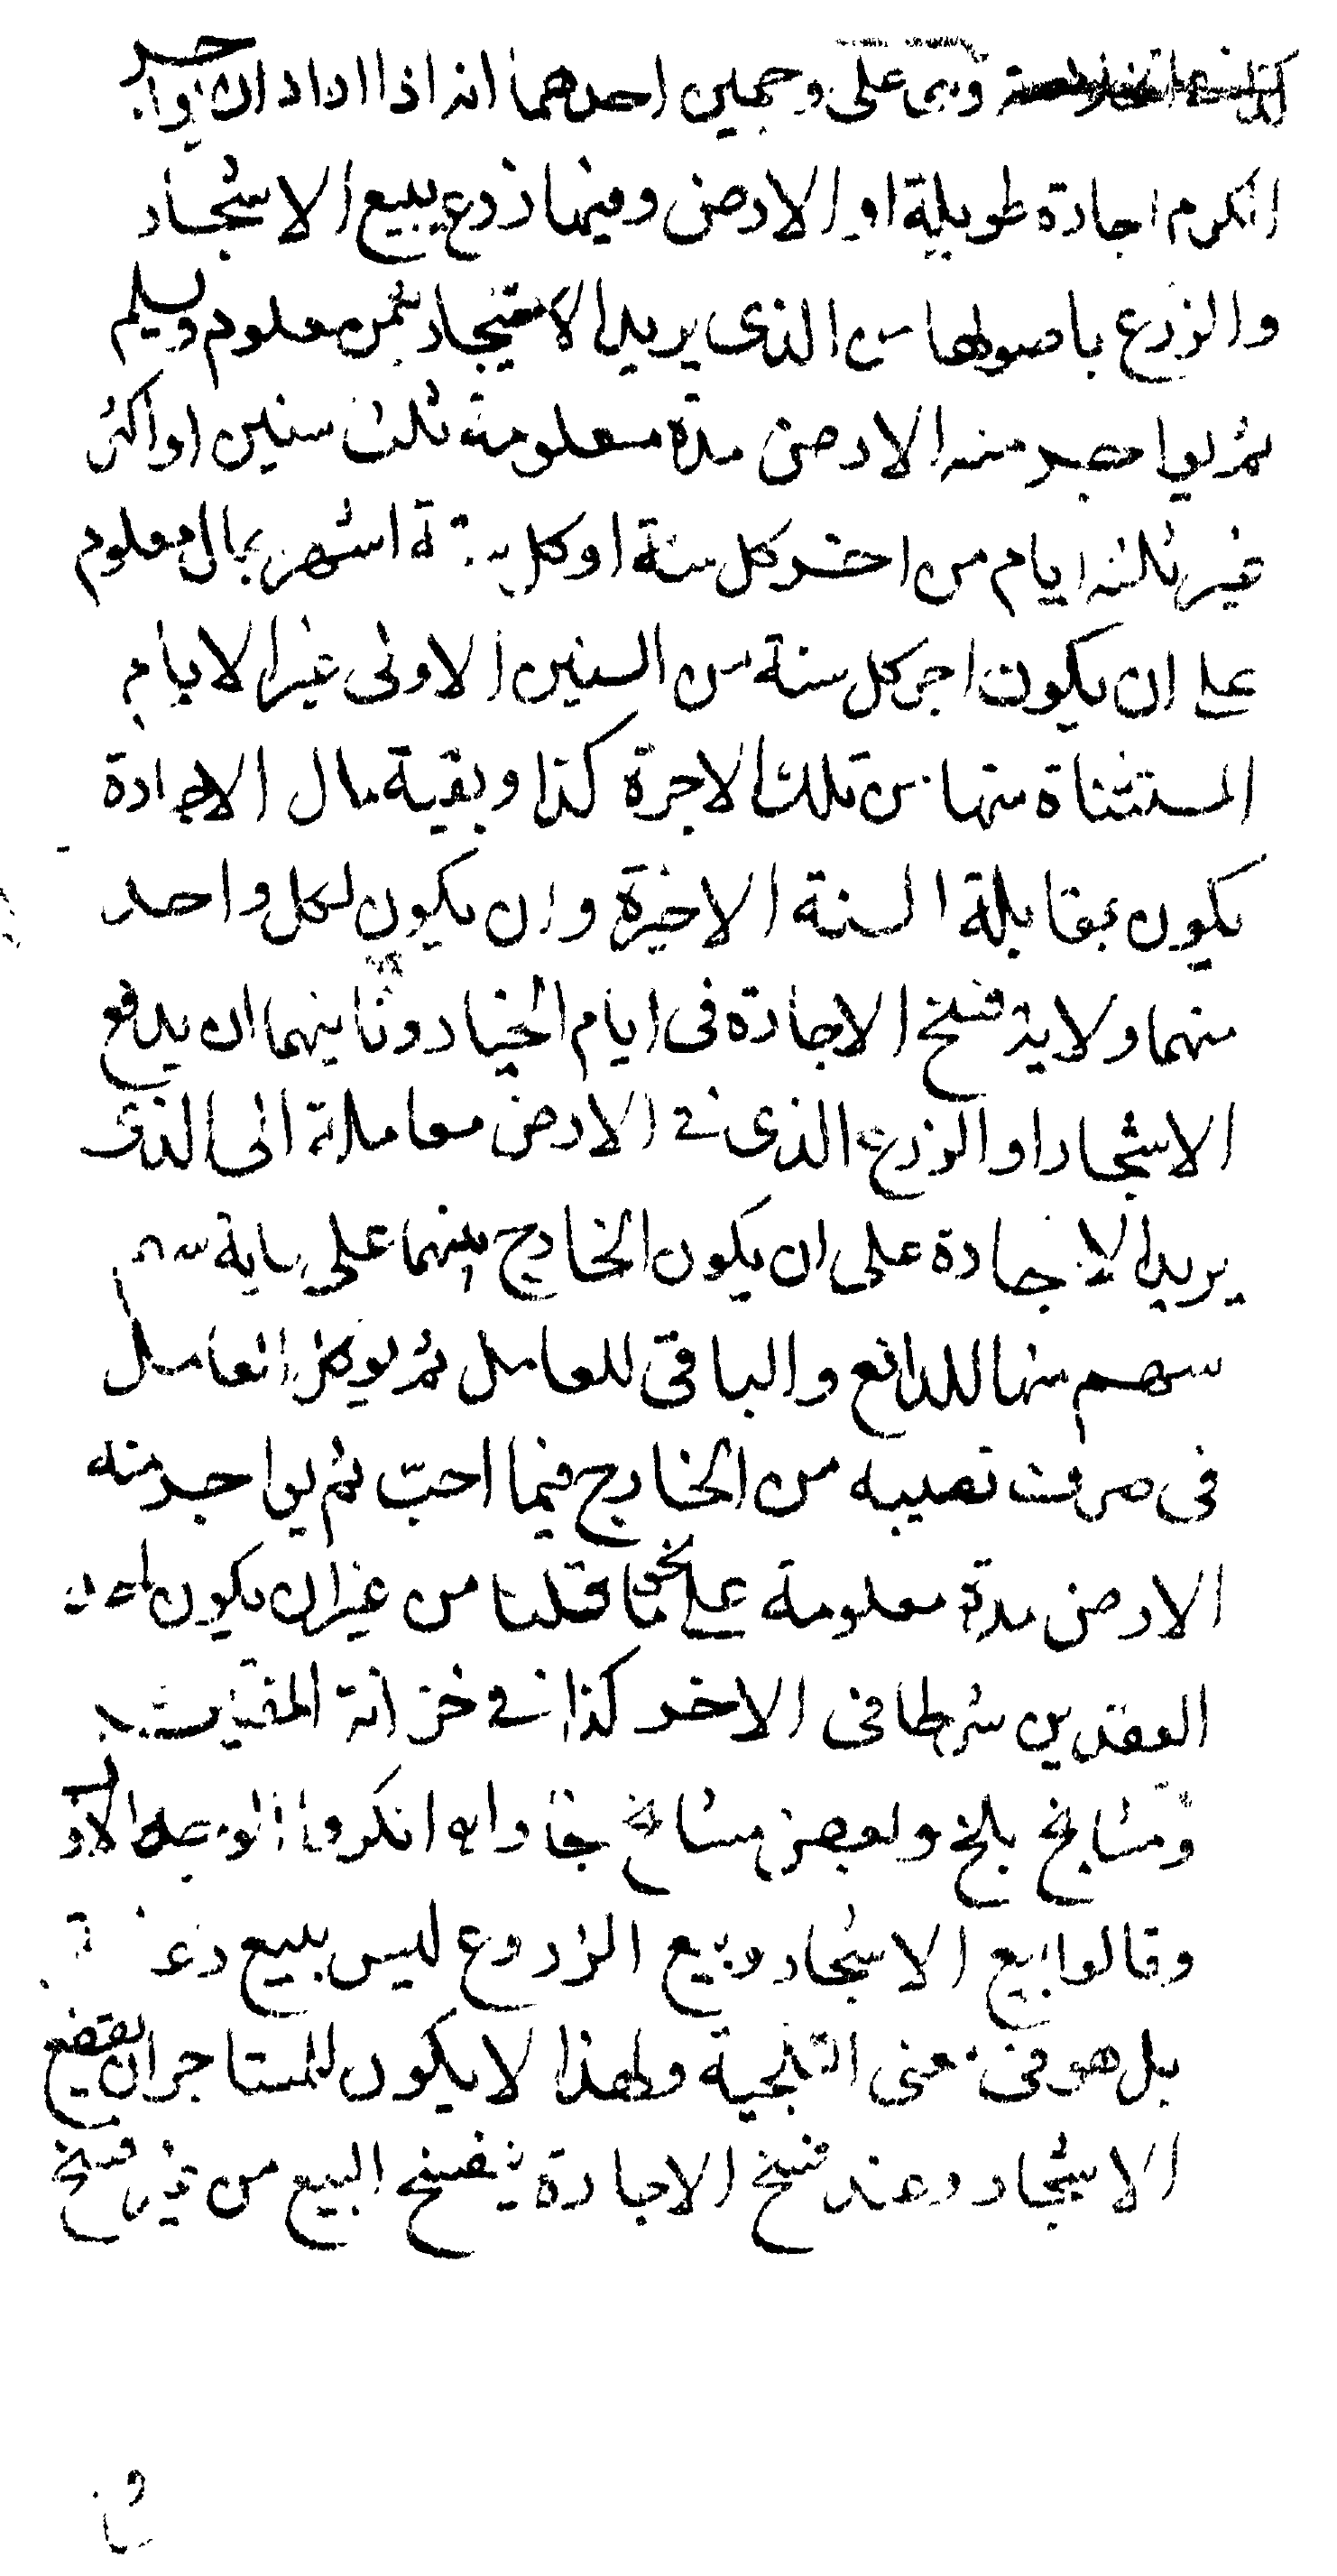 وهى على وجهين احدهما انه اذا اراد ان يواجر
الكرم اجارة طويلة او الارض وفيها زرع يبيع الاشجار
والزرع باصولها من الذى يريد الاستيجار بثمن معلوم ويسلم
ثم يواجر منه الارض مدة معلومة ثلث سنين او اكثر
غير ثلثه ايام من اخر كل سنة او كل ستة اشهر بمال معلوم
على ان يكون اجر كل سنة من السنين الاولى غير الايام
المستثناة منها من تلك الاجرة كذا وبقية مال الاجارة
يكون بمقابلة السنة الاخيرة وان يكون لكل واحد
منهما ولاية فسخ الاجارة فى ايام الخيار وثانيهما ان يدفع
الاشجار او الزرع الذى فى الارض معاملة الى الذى
يريد الاجارة على ان يكون الخارج بينهما على ماية سهم
سهم منها للدافع والباقى للعامل ثم يوكل العامل
فى صرف نصيبه من الخارج فيما احب ثم يواجر منه
الارض مدة معلومة على نحو ما قلنا من غير ان يكون احد
العقدين شرطا فى الاخر كذا فى خزانة المفتيين
ومشايخ بلخ وبعض مشايخ بخارا انكروا الوجه الاول
وقالوا بيع الاشجار وبيع الزروع ليس ببيع رغبة
بل هو فى معنى التلجية ولهذا لا يكون للمستاجر ان يقطع
الاشجار وعند فسخ الاجارة ينفسخ البيع من غير فسخ